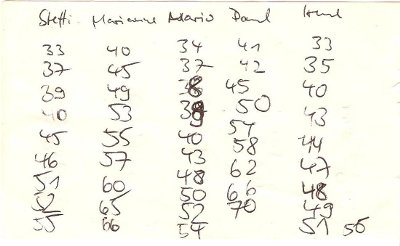 Steffi Marianne Mario Paul
33 40 34 41 33
37 45 37 42 35
39 49 45 40
40 53 50 43
45 55 40 54 44
46 57 43 58 47
51 60 48 62 48
52 65 50 66 49
55 66 52 70 51 56
54